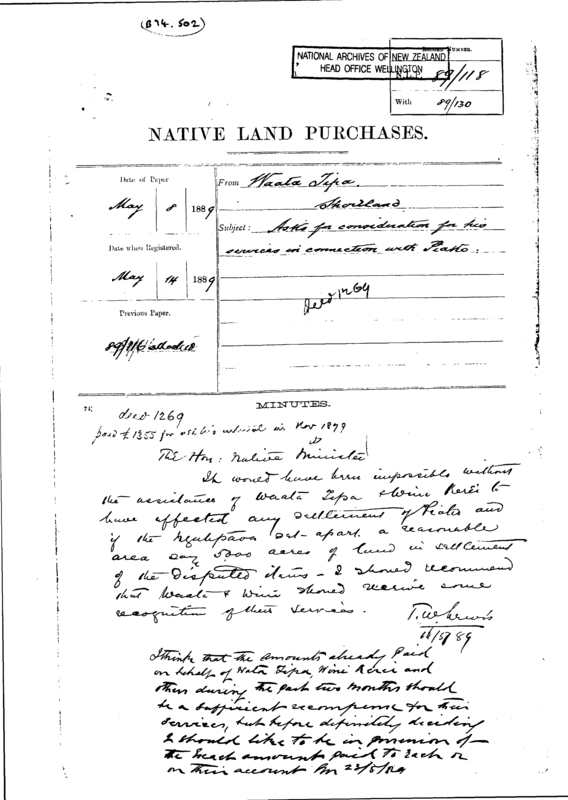 (B74.502)
NATIONAL ARCHIVES OF NEW ZEALAND
HEAD OFFICE WELLINGTON
N.L.P. 89/118
With 89/130
NATIVE LAND PURCHASES.
Date of Paper
May 8 1889
Date when Registered.
May 14 1889
Previous Paper.
From Waata Tipa.
Shortland
Subject: Asks for consideration for his
services in connection with Piako.
Deed 1269
MINUTES.
deed 1269
paid £1355 for all his interest in Nov 1879
The Hon: Native Minister
It would have been impossible without
the assistance of Waata Tipa & Wini Kerei to
have effected any settlement of Piako and
if the Ngatipaoa set-apart a reasonable
area say 5000 acres of land in settlement
of the disputed items - I should recommend
that Waata & Wini should receive some
recognition of their services.
T.W. Lewis
16/5/89
I think that the amounts already paid
on behalf of Wata Tipa, Wini Kerei and
others during the past two months should
be a sufficient recompense for their
services, but before definitely deciding
I should like to be in possession of
the exact amounts paid to each or
on their account 23/5/89